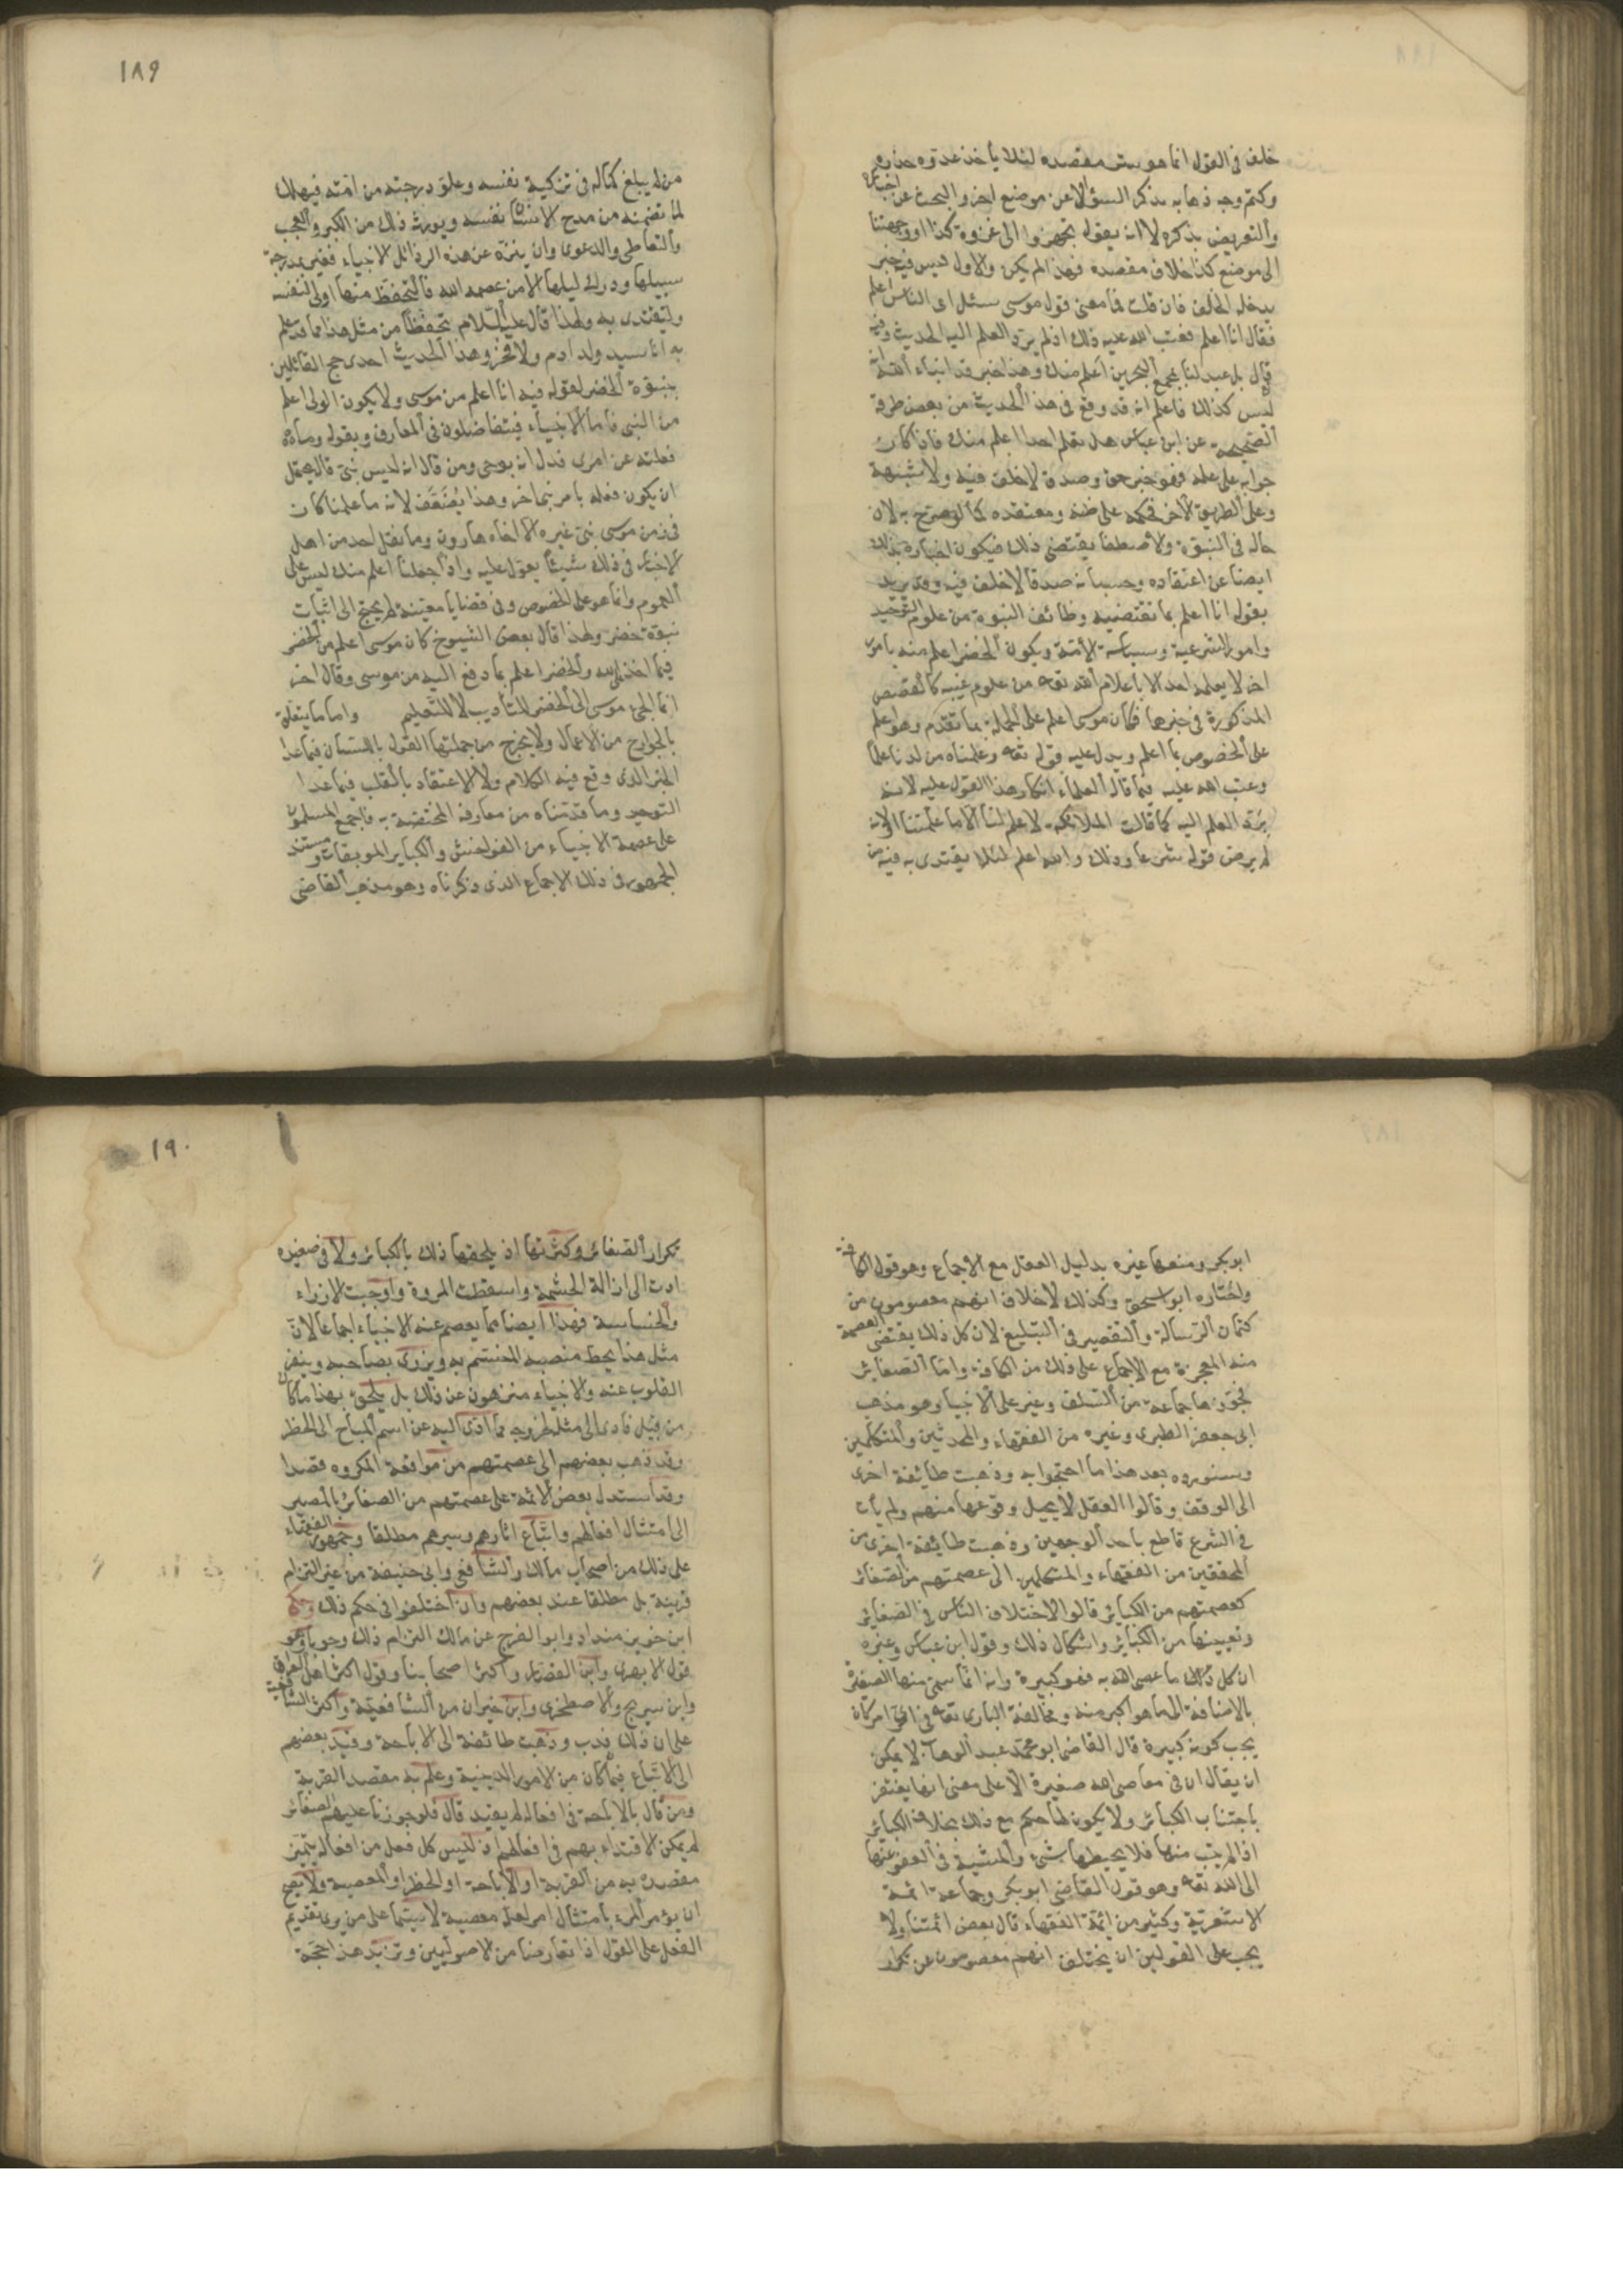 خلف فى القول انما هو ستر مقصده لئلا يأخذ عدوه حذره
وكتم وجه ذهابه بذكر السؤال عن موضع اخر والبحث عن اخباره
والتعريض بذكره لا انه يقول تجهزوا الى غزوة كذا او وجهتنا
الى موضع كذا خلاف مقصده فهذا لم يكن والاول ليس فيه خبر
يدخله الخلف فان قلت فما معنى قول موسى وسئل اى الناس اعلم
فقال انا اعلم فعتب الله عليه ذلك اذ لم يرد العلم اليه الحديث وفيه
قال بل عبد لنا بمجمع البحرين اعلم منك وهذا خبر قد انباء الله انه
ليس كذلك فاعلم انه قد وقع فى هذا الحديث من بعض طرقه
الصحيحة عن ابن عباس هل تعلم احدا اعلم منك فاذا كان
جوابه على علمه فهو خبر حق وصدق لا خلف فيه ولا شبهة
وعلى الطريق الاخر فمحمله على ظنه ومعتقده كما لو صرح به لان
حاله فى النبوة والاصطفا يقتضى ذلك فيكون اخباره بذلك
ايضا عن اعتقاده وحسبانه صدقا لا خلف فيه وقد يريد
بقوله انا اعلم بما تقتضيه وظائف النبوة من علوم التوحيد
وامور الشرعية وسياسة الامة ويكون الخضر اعلم منه بامور
اخر لا يعلمها احد الا باعلام الله تعه من علوم غيبه كالقصص
المذكورة فى خبرها فكان موسى اعلم على الجملة بما تقدم وهو اعلم
على الخصوص بما اعلم ويدل عليه قوله تعه وعلمناه من لدنا علما
وعتب الله عليه فيما قال العلماء انكار هذا القول عليه لانه
يرد العلم اليه كما قالت الملائكة لا علم لنا الا ما علمتنا او لانه
لم يرض قوله شرعا وذلك والله اعلم لئلا يقتدى به فيه من
١٨٩
من لم يبلغ كماله فى تزكية نفسه وعلو درجته من امته فيهلك
لما تضمنه من مدح الانسان نفسه ويورثه ذلك من الكبر والعجب
والتعاطى والدعوى وان ينزه عن هذه الرذائل الانبياء فغيرهم بمدرجة
سبيلها ودرك ليلها الا من عصمه الله فالتحفظ منها اولى لنفسه
وليقتدى به ولهذا قال عليه السلام تحفظا من مثل هذا مما قد علم
به انا سيد ولد ادم ولا فخر وهذا الحديث احدى حجج القائلين
بنبوة الخضر لقوله فيه انا اعلم من موسى ولا يكون الولى اعلم
من النبى فاما الانبياء فيتفاضلون فى المعارف وبقوله وما
فعلته عن امرى فدل انه بوحى ومن قال انه ليس بنبى قال يحتمل
ان يكون فعله بامر نبى اخر وهذا يضعف لانه ما علمنا كان
فى زمن موسى نبى غيره الا اخاه هارون وما نقل احد من اهل
الاخبار فى ذلك شيئا يعول عليه واذا جعلنا اعلم منك ليس على
العموم وانما هو على الخصوص وفى قضايا معينة لم يحتج الى اثبات
نبوة خضر ولهذا قال بعض الشيوخ كان موسى اعلم من الخضر
فيما اخذ عن الله والخضر اعلم بما دفع اليه من موسى وقال اخر
انما الجئ موسى الى الخضر للتأديب لا للتعليم واما ما يتعلق
بالجوارح من الاعمال ولا يخرج من جملتها القول باللسان فيما عدا
الخبر الذى وقع فيه الكلام ولا الاعتقاد بالقلب فيما عدا
التوحيد وما قدمناه من معارفه المختصة به فاجمع المسلمون
على عصمة الانبياء من الفواحش والكباير الموبقات ومستند
الجمهور فى ذلك الاجماع الذى ذكرناه وهو مذهب القاضى
ابو بكر ومنعها غيره بدليل العقل مع الاجماع وهو قول الكافة
واختاره ابو اسحق وكذلك لا خلاف انهم معصومون من
كتمان الرسالة والتقصير فى التبليغ لان كل ذلك يقتضى العصمة
منه المعجزة مع الاجماع على ذلك من الكافة واما الصغاير
فجوزها جماعة من السلف وغيرهم على الانبيا وهو مذهب
ابى جعفر الطبرى وغيره من الفقهاء والمحدثين والمتكلمين
وسنورد بعد هذا ما احتجوا به وذهبت طائفة اخرى
الى الوقف وقالوا العقل لا يحيل وقوعها منهم ولم يأت
فى الشرع قاطع باحد الوجهين وذهبت طائفة اخرى من
المحققين من الفقهاء والمتكلمين الى عصمتهم من الصغائر
كعصمتهم من الكبائر قالوا لاختلاف الناس فى الصغاير
وتعيينها من الكبائر واشكال ذلك وقول ابن عباس وغيره
ان كل ذلك ما عصى الله به فهو كبيرة وانه انما سمى منها الصغير
بالاضافة الى ما هو اكبر منه ومخالفة البارى تعه فى اى امر كان
يجب كونه كبيرة قال القاضى ابو محمد عبد الوهاب لا يمكن
ان يقال ان فى معاصى الله صغيرة الا على معنى انها يغتفر
باجتناب الكبائر ولا يكون لها حكم مع ذلك بخلاف الكبائر
اذا لم يتب منها فلا يحبطها شئ والمشية فى العفو عنها
الى الله تعه وهو قول القاضى ابو بكر وجماعة ائمة
الاشعرية وكثير من ائمة الفقهاء قال بعض ائمتنا ولا
يجب على القولين ان يختلف انهم معصومون عن تكرر
١٩٠
تكرار الصغائر وكثرتها اذ يلحقها ذلك بالكبائر ولا فى صغيره
ادت الى ازالة الحشمة واسقطت المروة واوجبت الازراء
والخساسة فهذا ايضا مما يعصم عنه الانبياء اجماعا لان
مثل هذا يحط منصبه المتسم به ويزرى بصاحبه وينفر
القلوب عنه والانبياء منزهون عن ذلك بل يلحق بهذا ما كان
من قبيل فادى الى مثله لخروجه بما ادى اليه عن اسم المباح الى الحظر
وقد ذهب بعضهم الى عصمتهم من مواقعة المكروه قصدا
وقد استدل بعض الائمة على عصمتهم من الصغائر بالمصير
الى امتثال افعالهم واتباع اثارهم وسيرهم مطلقا وجمهور الفقهاء
على ذلك من اصحاب مالك والشافعى وابى حنيفة من غير التزام
قرينة بل مطلقا عند بعضهم وان اختلفوا فى حكم ذلك وحكى
ابن خويز منداد وابو الفرج عن مالك التزام ذلك وجوبا وهو
قول الابهرى وابن القصار واكثر اصحابنا وقول اكثر اهل العراق
وابن سريج والاصطخرى وابن خيران من الشافعية واكثر الشافعية
على ان ذلك ندب وذهبت طائفة الى الاباحة وقيد بعضهم
الى الاتباع فيما كان من الامور الدينية وعلم به مقصد القربة
ومن قال بالاباحة فى افعاله لم يقيد قال فلو جوزنا عليهم الصغائر
لم يمكن الاقتداء بهم فى افعالهم اذ ليس كل فعل من افعاله يتميز
مقصده به من القربة او الاباحة او الحظر او المعصية ولا يصح
ان يؤمر المرء بامتثال امر لعله معصية لا سيما على من يرى تقديم
الفعل على القول اذا تعارضا من الاصوليين ونزيد هذا حجة